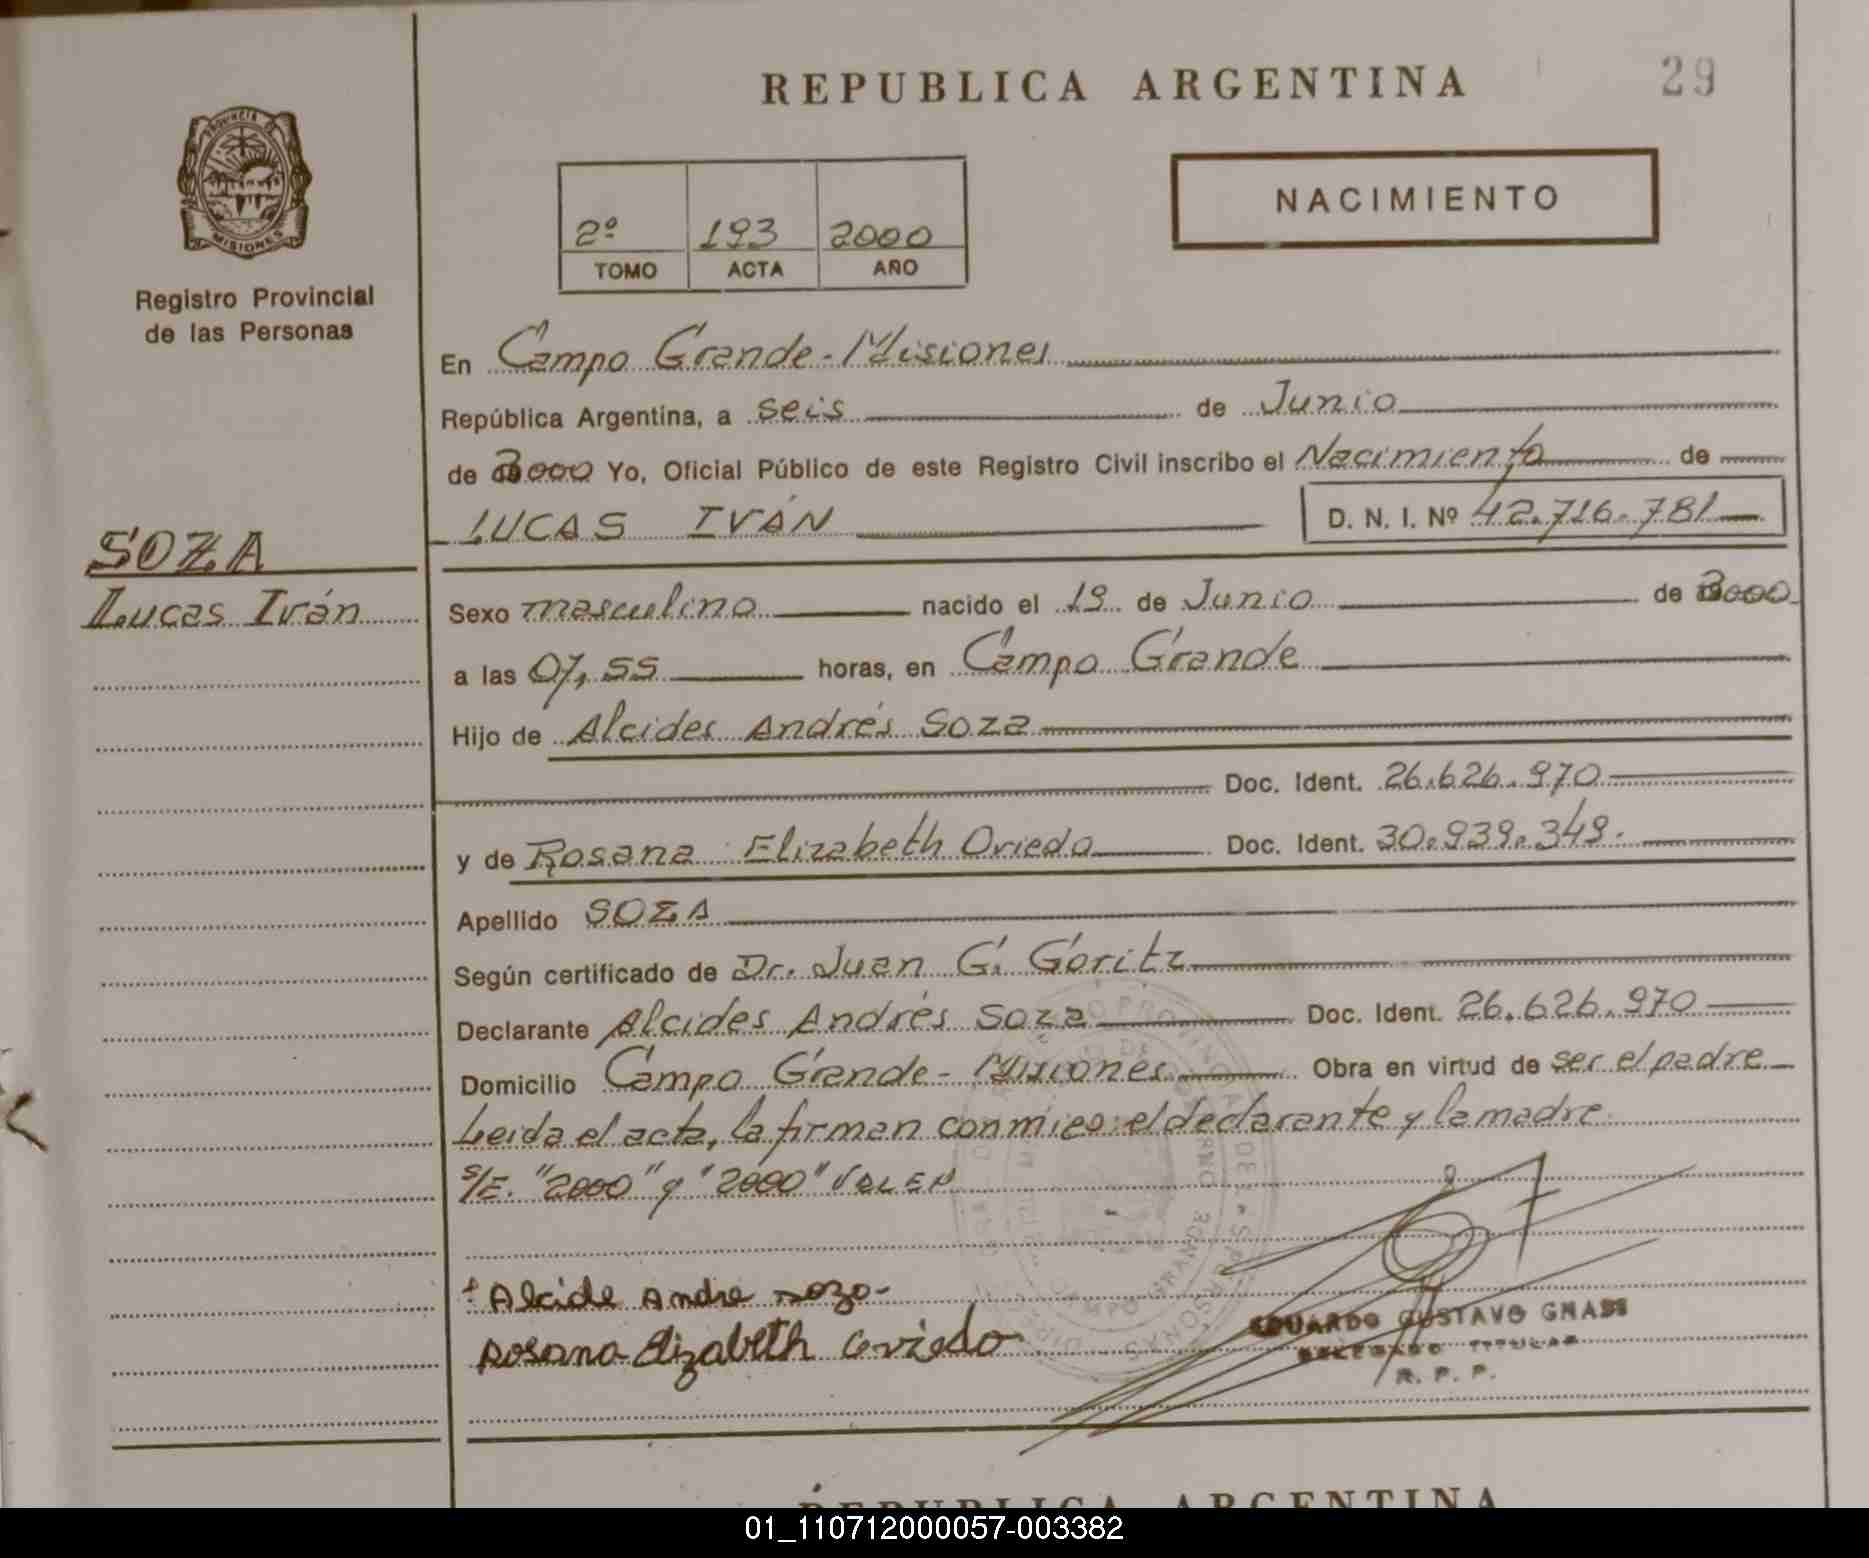 REPUBLICA ARGENTINA
29
PROVINCIA DE
MISIONES
Registro Provincial
de las Personas
NACIMIENTO
2º 193 2000
TOMO ACTA AÑO
En Campo Grande - Misiones
República Argentina, a seis de Junio
de 2000 Yo, Oficial Público de este Registro Civil inscribo el Nacimiento de
LUCAS IVÁN D. N. I. Nº 42.716.781
SOZA
Lucas Iván
Sexo masculino nacido el 19 de Junio de 2000
a las 07,55 horas, en Campo Grande
Hijo de Alcides Andrés Soza
Doc. Ident. 26.626.970
y de Rosana Elizabeth Oviedo Doc. Ident. 30.939.349.
Apellido SOZA
Según certificado de Dr. Juan G. Goritz
Declarante Alcides Andrés Soza Doc. Ident. 26.626.970
Domicilio Campo Grande - Misiones Obra en virtud de ser el padre
Leida el acta, la firman conmigo: el declarante y la madre
S/E. "2000" y "2000" VALEN
Alcide Andre sozo-
Rosana Elizabeth Oviedo
CAMPO GRANDE
EDUARDO GUSTAVO GNASS
DELEGADO TITULAR
R. P. P.
REPUBLICA ARGENTINA
01_110712000057-003382